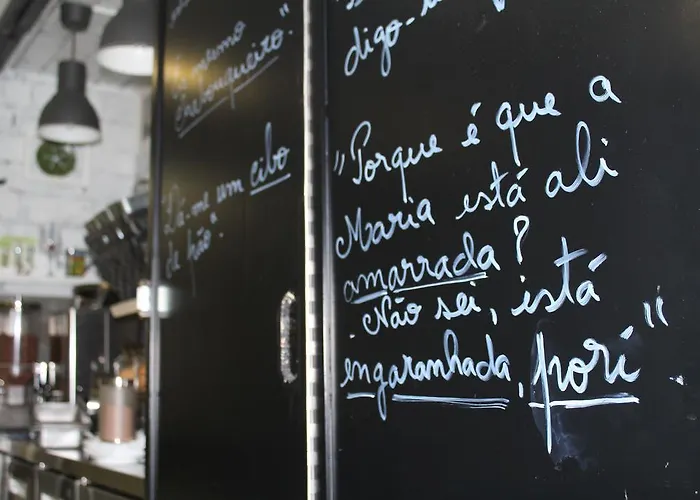 mesmo
Chavonqueiro."
Dá-me um cibo
de pão".
digo-
"Porque é que a
Maria está ali
amarrada?
Não sei, está
engaranhada, pori"